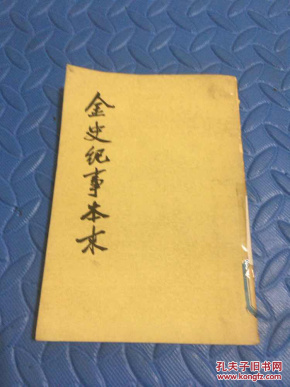 金史纪事本末
孔夫子旧书网